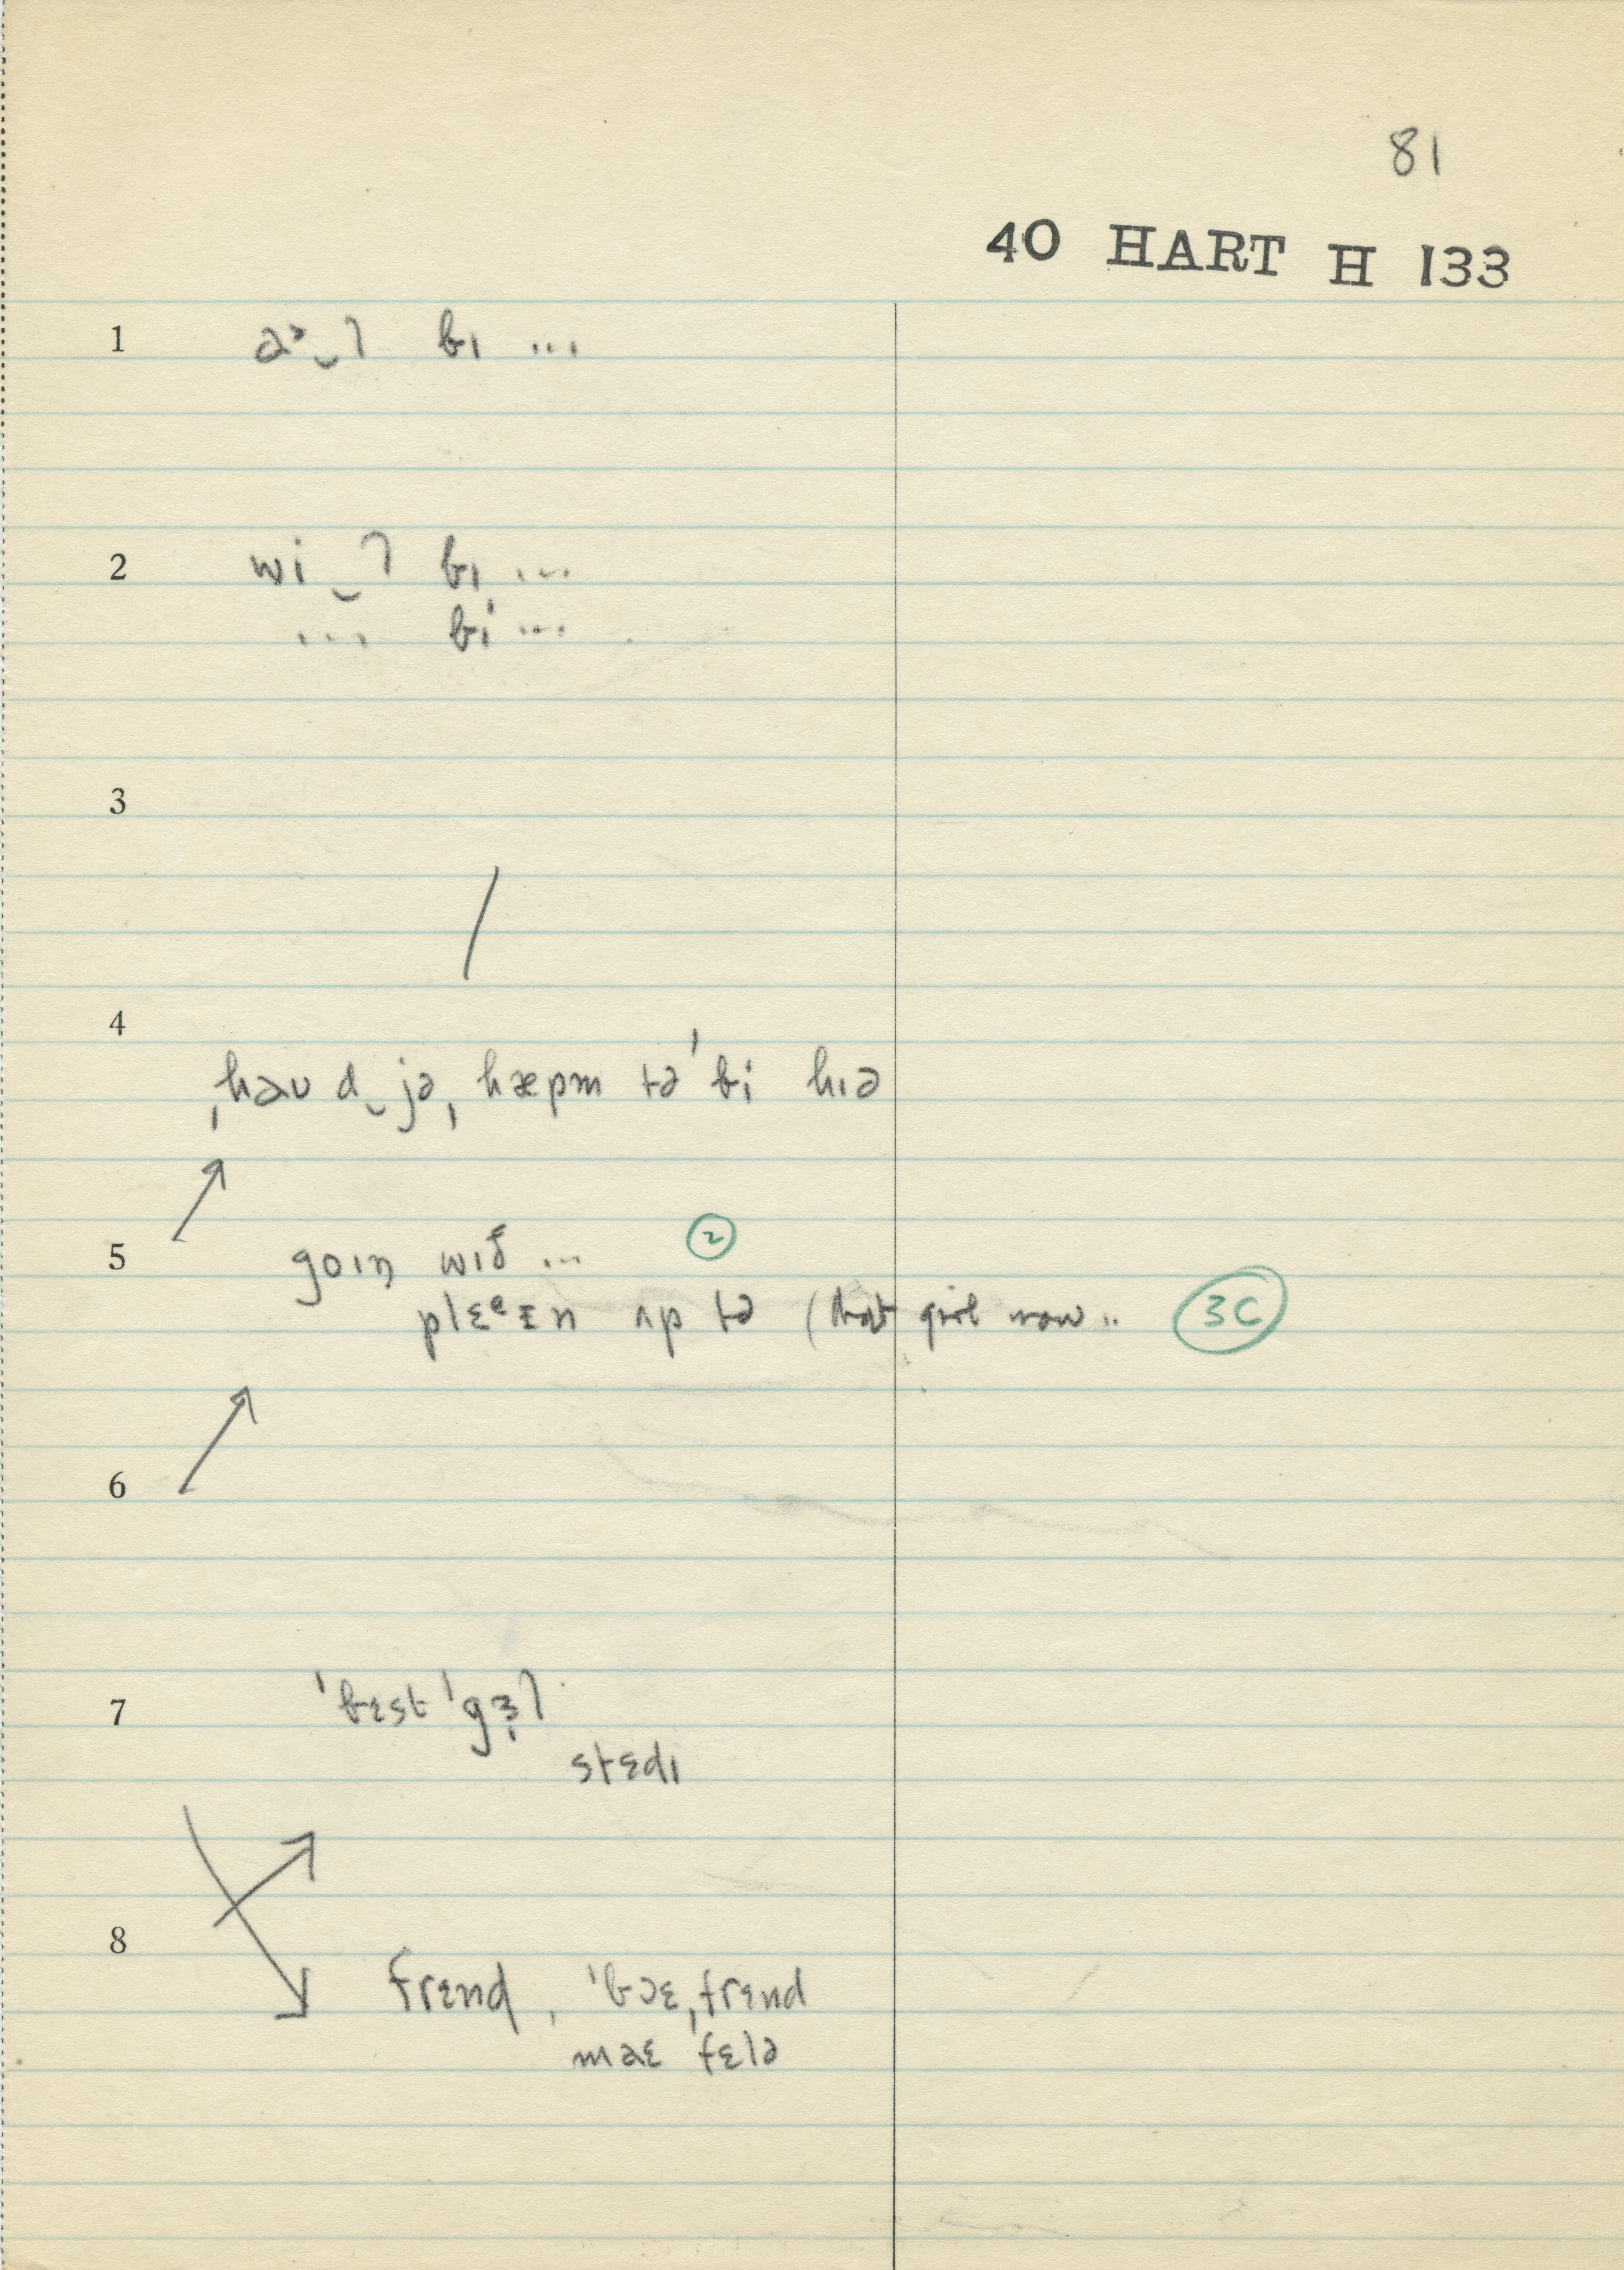 81
40 HART H 133
1 bɪ ...
2 wi‿l bɪ ...
... bi ...
3
4
ˌhəu d‿jəˌhæpm tə ˈbi hɪə
5 goɪŋ wɪð ... 2
plɛᵉɪn ʌp tə (that girl now .. 3C
6
7 ˈbɛst ˈgɜl
stɛdɪ
8
frɛnd, ˈbɔɛˌfrɛnd
maɛ fɛlə